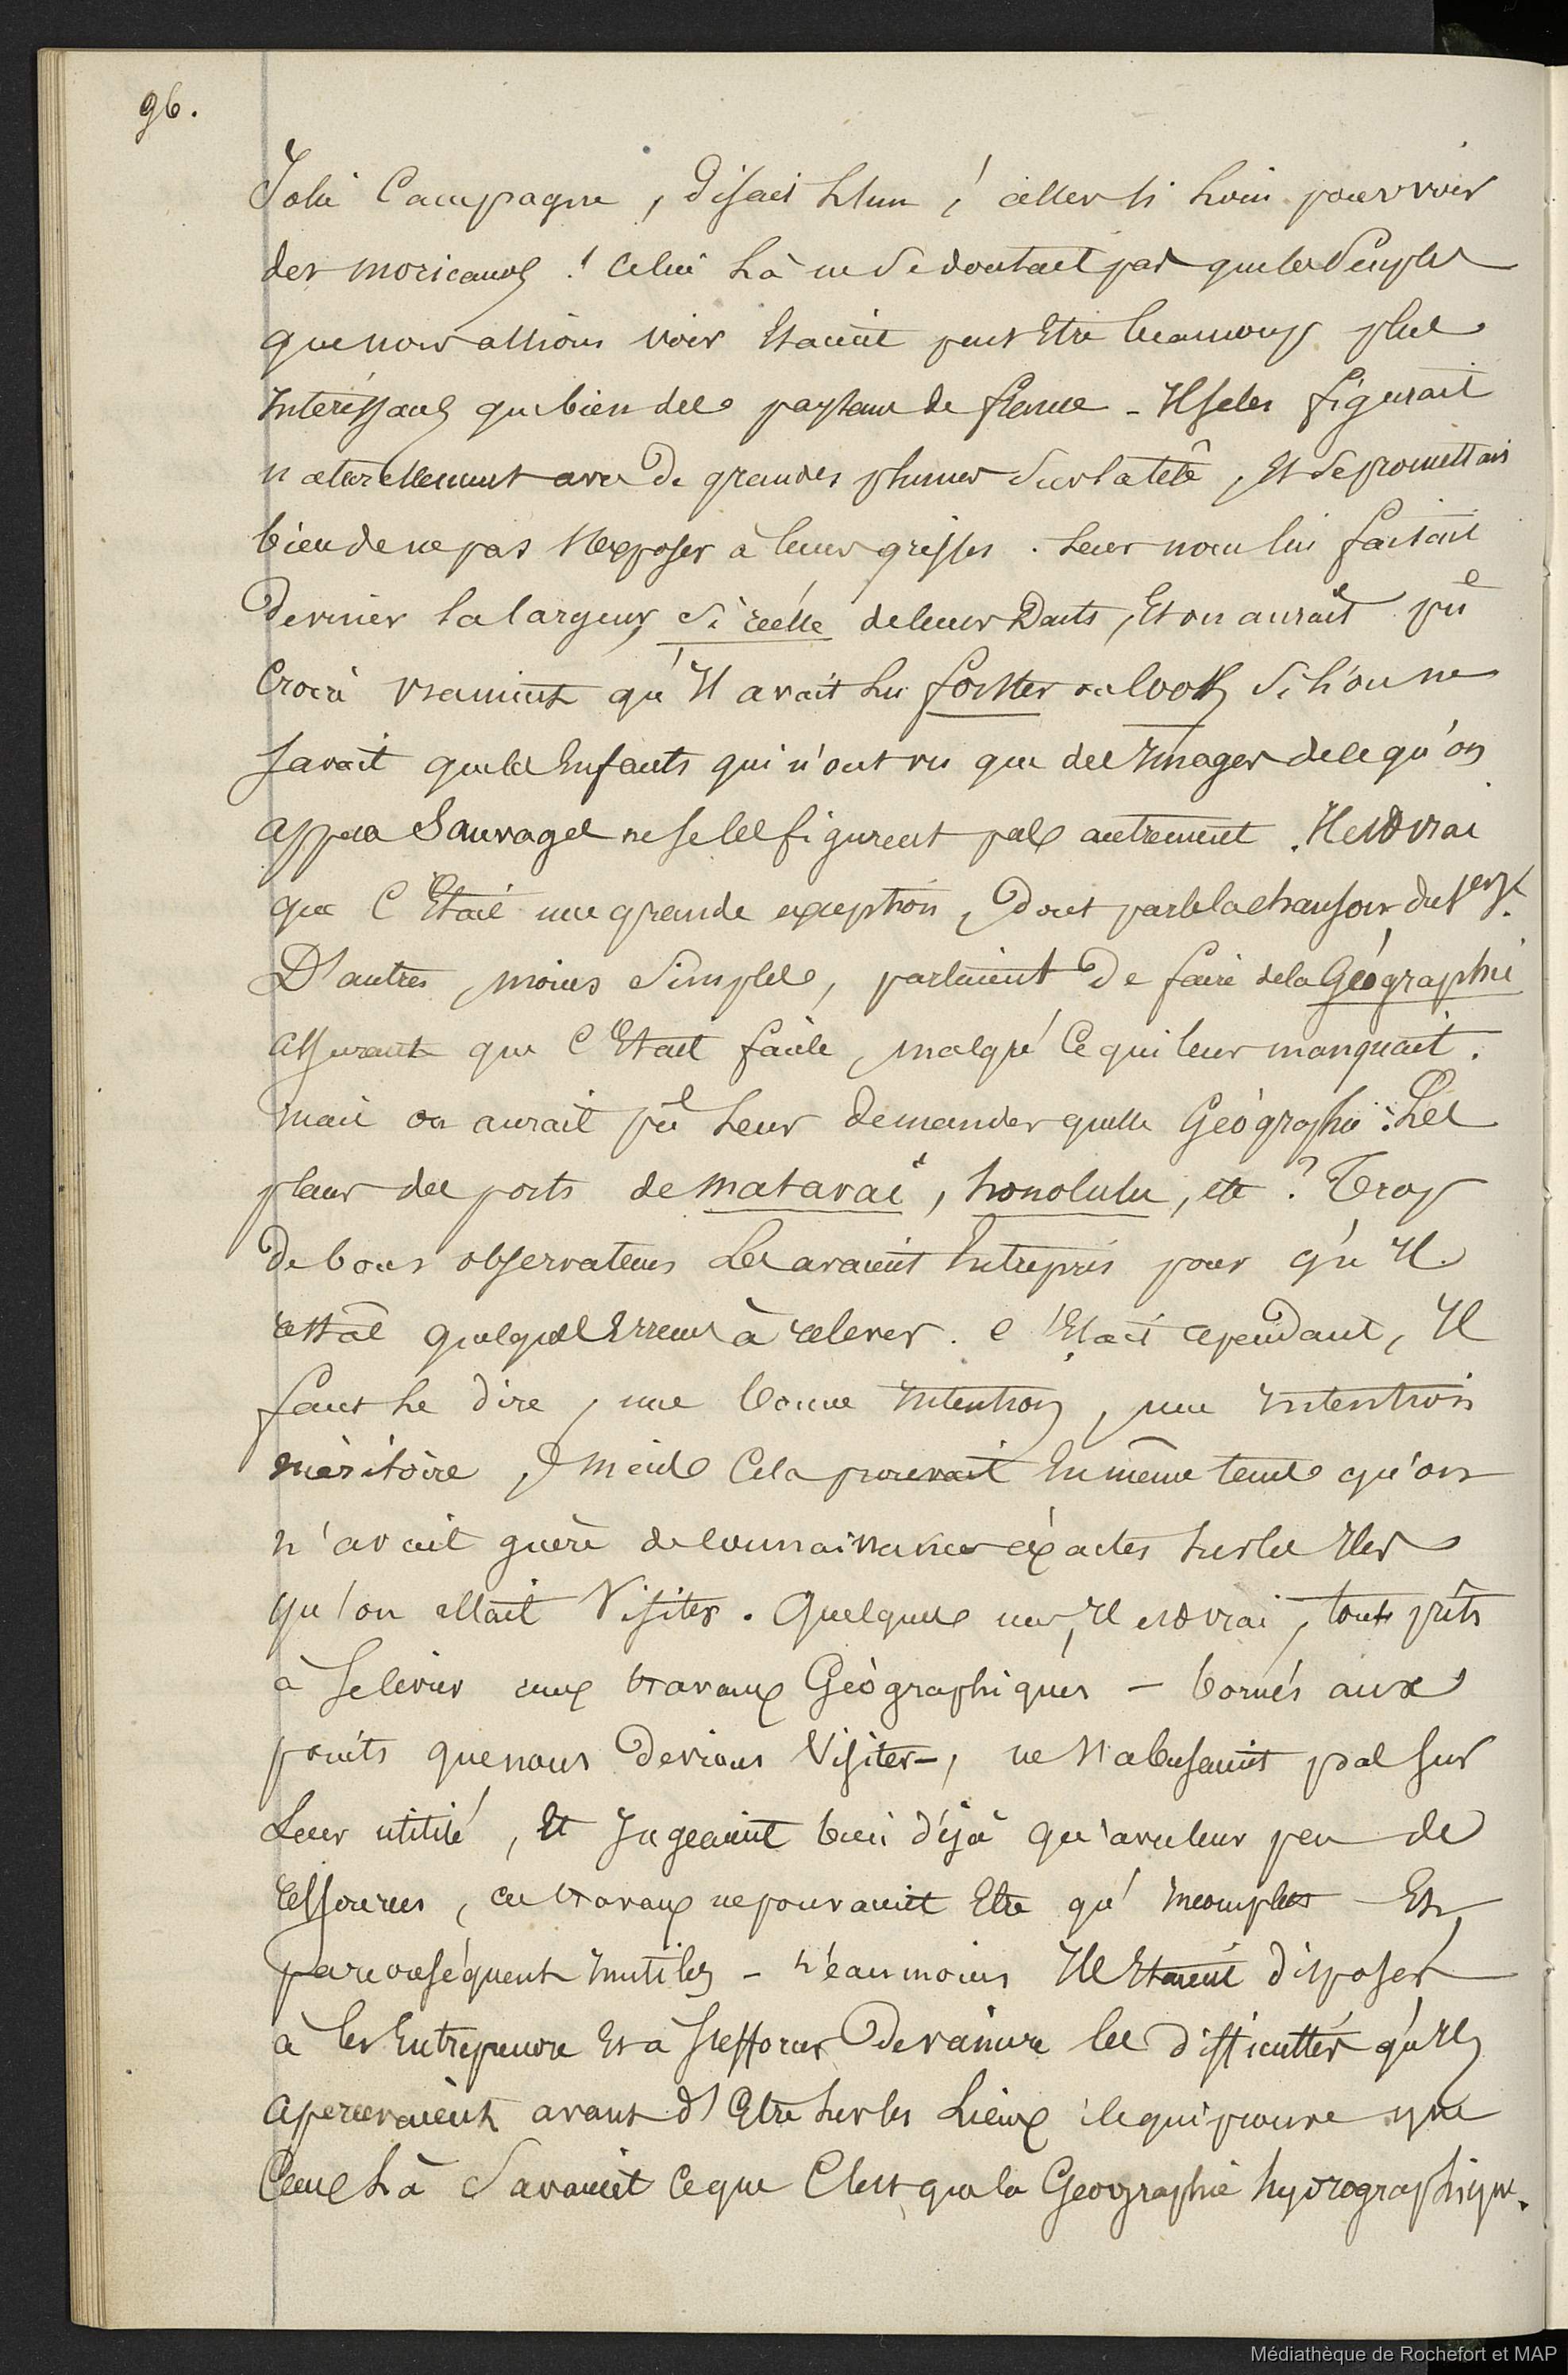 96.
Jolie Campagne, disait L'un, aller si Loin pour voir
des moricauds ! Celui Là ne se doutait pas que les Peuples
que nous allions voir Etaient peut Etre beaucoup plus
Intéressants que bien des paysans de france - Il se les figurait
naturellement avec De grandes plumes sur la tête, Et se promettait
bien de ne pas s'Exposer à leurs griffes. Leur nom lui faisait
Deviner La largeur, si réelle de leurs Dents, Et on aurait pû
Croire vraiment qu'Il avait Lu forster ou Cook, si L'on ne
savait que les Enfants qui n'ont vu que des Images de ce qu'on
appelle Sauvages ne se les figurent pas autrement. Il est vrai
que C'Etait une grande exception, Dont parle la chanson du
D'autres, moins simples, parlaient De faire de la Géographie
assurant que C'Etait facile, malgré Ce qui leur manquait.
mais on aurait pû Leur Demander quelle Géographie : Les
plans des ports de matavaï, honolulu, etc ? Trop
De bons observateurs Les avaient Entrepris pour qu'Il
restât quelques Erreurs à relever. C'Etait cependant, Il
faut Le dire, une bonne Intention, une Intention
méritoire, mais Cela prouvait En même tems qu'on
n'avait guère de Connaissances éxactes sur les Iles
qu'on allait Visiter. Quelques uns, Il est vrai, tout prêts
à se livrer aux travaux Géographiques — bornés aux
points que nous Devions Visiter —, ne s'abusaient pas sur
Leur utilité, Et Jugeaient bien déjà qu'avec leur peu de
ressources, ces travaux ne pouvaient Etre qu'Incomplets Et
par conséquent Inutiles - néanmoins Ils Etaient disposés
à les Entreprendre Et à s'efforcer De vaincre les difficultés qu'Ils
apercevaient avant d'Etre sur les Lieux ; ce qui prouve que
Ceux Là Savaient Ce que C'est que la Géographie hydrographique.
Médiathèque de Rochefort et MAP